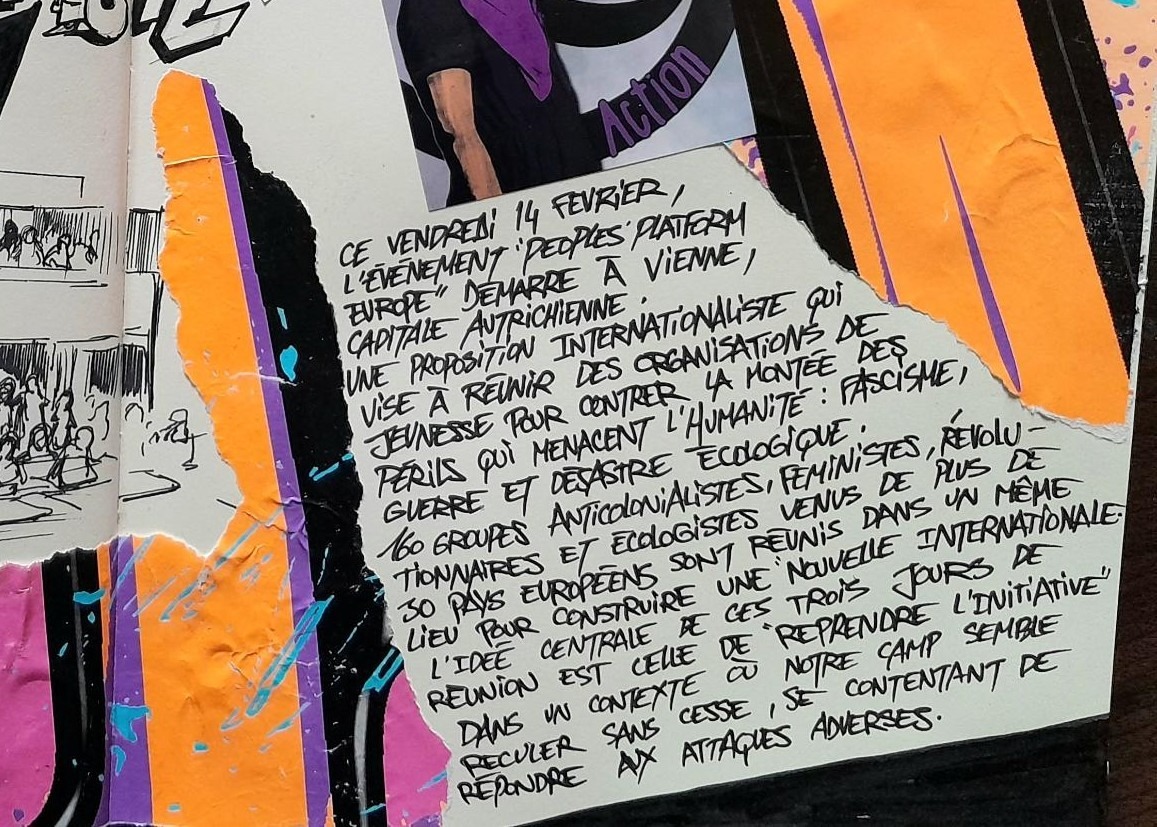 Action
CE VENDREDI 14 FEVRIER,
L'ÉVÉNEMENT "PEOPLES' PLATFORM
EUROPE" DÉMARRE À VIENNE,
CAPITALE AUTRICHIENNE.
UNE PROPOSITION INTERNATIONALISTE QUI
VISE À RÉUNIR DES ORGANISATIONS DE
JEUNESSE POUR CONTRER LA MONTÉE DES
PÉRILS QUI MENACENT L'HUMANITÉ : FASCISME,
GUERRE ET DÉSASTRE ÉCOLOGIQUE.
160 GROUPES ANTICOLONIALISTES, FÉMINISTES, RÉVOLU-
TIONNAIRES ET ECOLOGISTES VENUS DE PLUS DE
30 PAYS EUROPÉENS SONT RÉUNIS DANS UN MÊME
LIEU POUR CONSTRUIRE UNE NOUVELLE INTERNATIONALE.
L'IDEÉ CENTRALE DE CES TROIS JOURS DE
RÉUNION EST CELLE DE "REPRENDRE L'INITIATIVE"
DANS UN CONTEXTE OÙ NOTRE CAMP SEMBLE
RECULER SANS CESSE, SE CONTENTANT DE
RÉPONDRE AUX ATTAQUES ADVERSES.